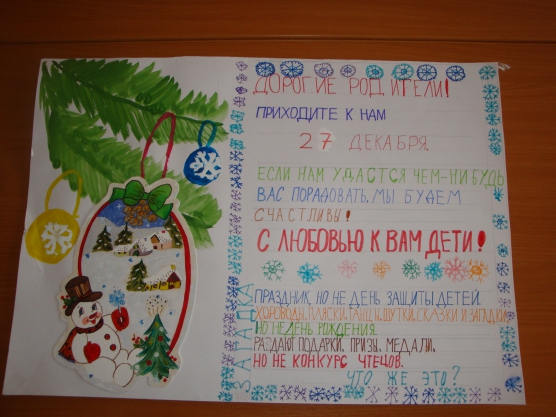 ДОРОГИЕ РОДИТЕЛИ!
ПРИХОДИТЕ К НАМ
27 ДЕКАБРЯ.
ЕСЛИ НАМ УДАСТСЯ ЧЕМ-НИБУДЬ
ВАС ПОРАДОВАТЬ, МЫ БУДЕМ
СЧАСТЛИВЫ!
С ЛЮБОВЬЮ К ВАМ ДЕТИ!
ЗАГАДКА
ПРАЗДНИК, НО НЕ ДЕНЬ ЗАЩИТЫ ДЕТЕЙ.
ХОРОВОДЫ, ПЛЯСКИ, ТАНЦЫ, ШУТКИ, СКАЗКИ И ЗАГАДКИ,
НО НЕ ДЕНЬ РОЖДЕНИЯ.
РАЗДАЮТ ПОДАРКИ, ПРИЗЫ, МЕДАЛИ,
НО НЕ КОНКУРС ЧТЕЦОВ.
ЧТО ЖЕ ЭТО?